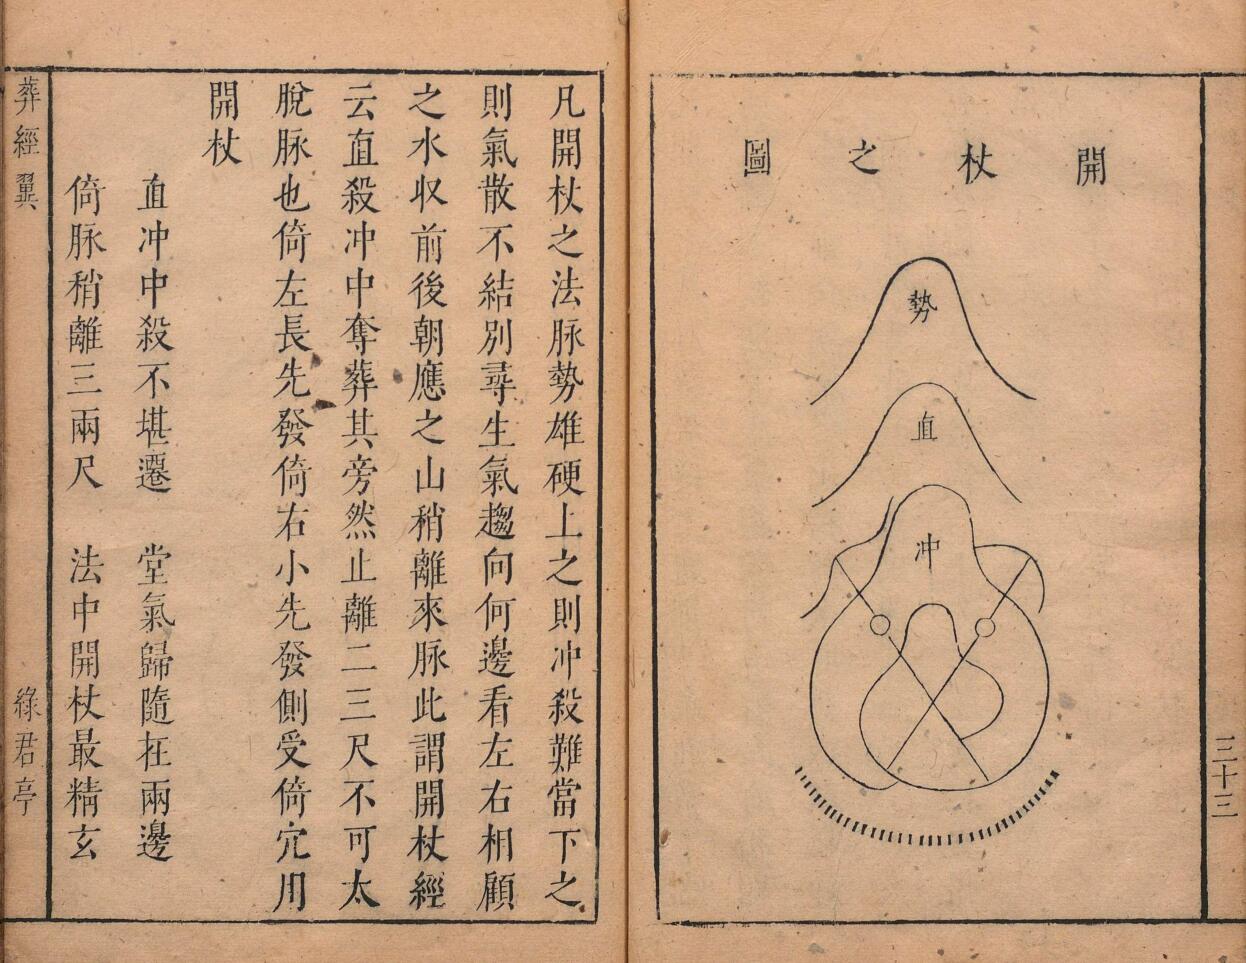 開杖之圖
勢
直
冲
三十三
凡開杖之法脉勢雄硬上之則冲殺難當下之
則氣散不結別尋生氣趨向何邊看左右相顧
之水収前後朝應之山稍離來脉此謂開杖經
云直殺冲中奪葬其旁然止離二三尺不可太
脫脉也倚左長先發倚右小先發側受倚穴用
開杖
直冲中殺不堪遷　堂氣歸隨在兩邊
倚脉稍離三兩尺　法中開杖最精玄
葬經翼　綠君亭